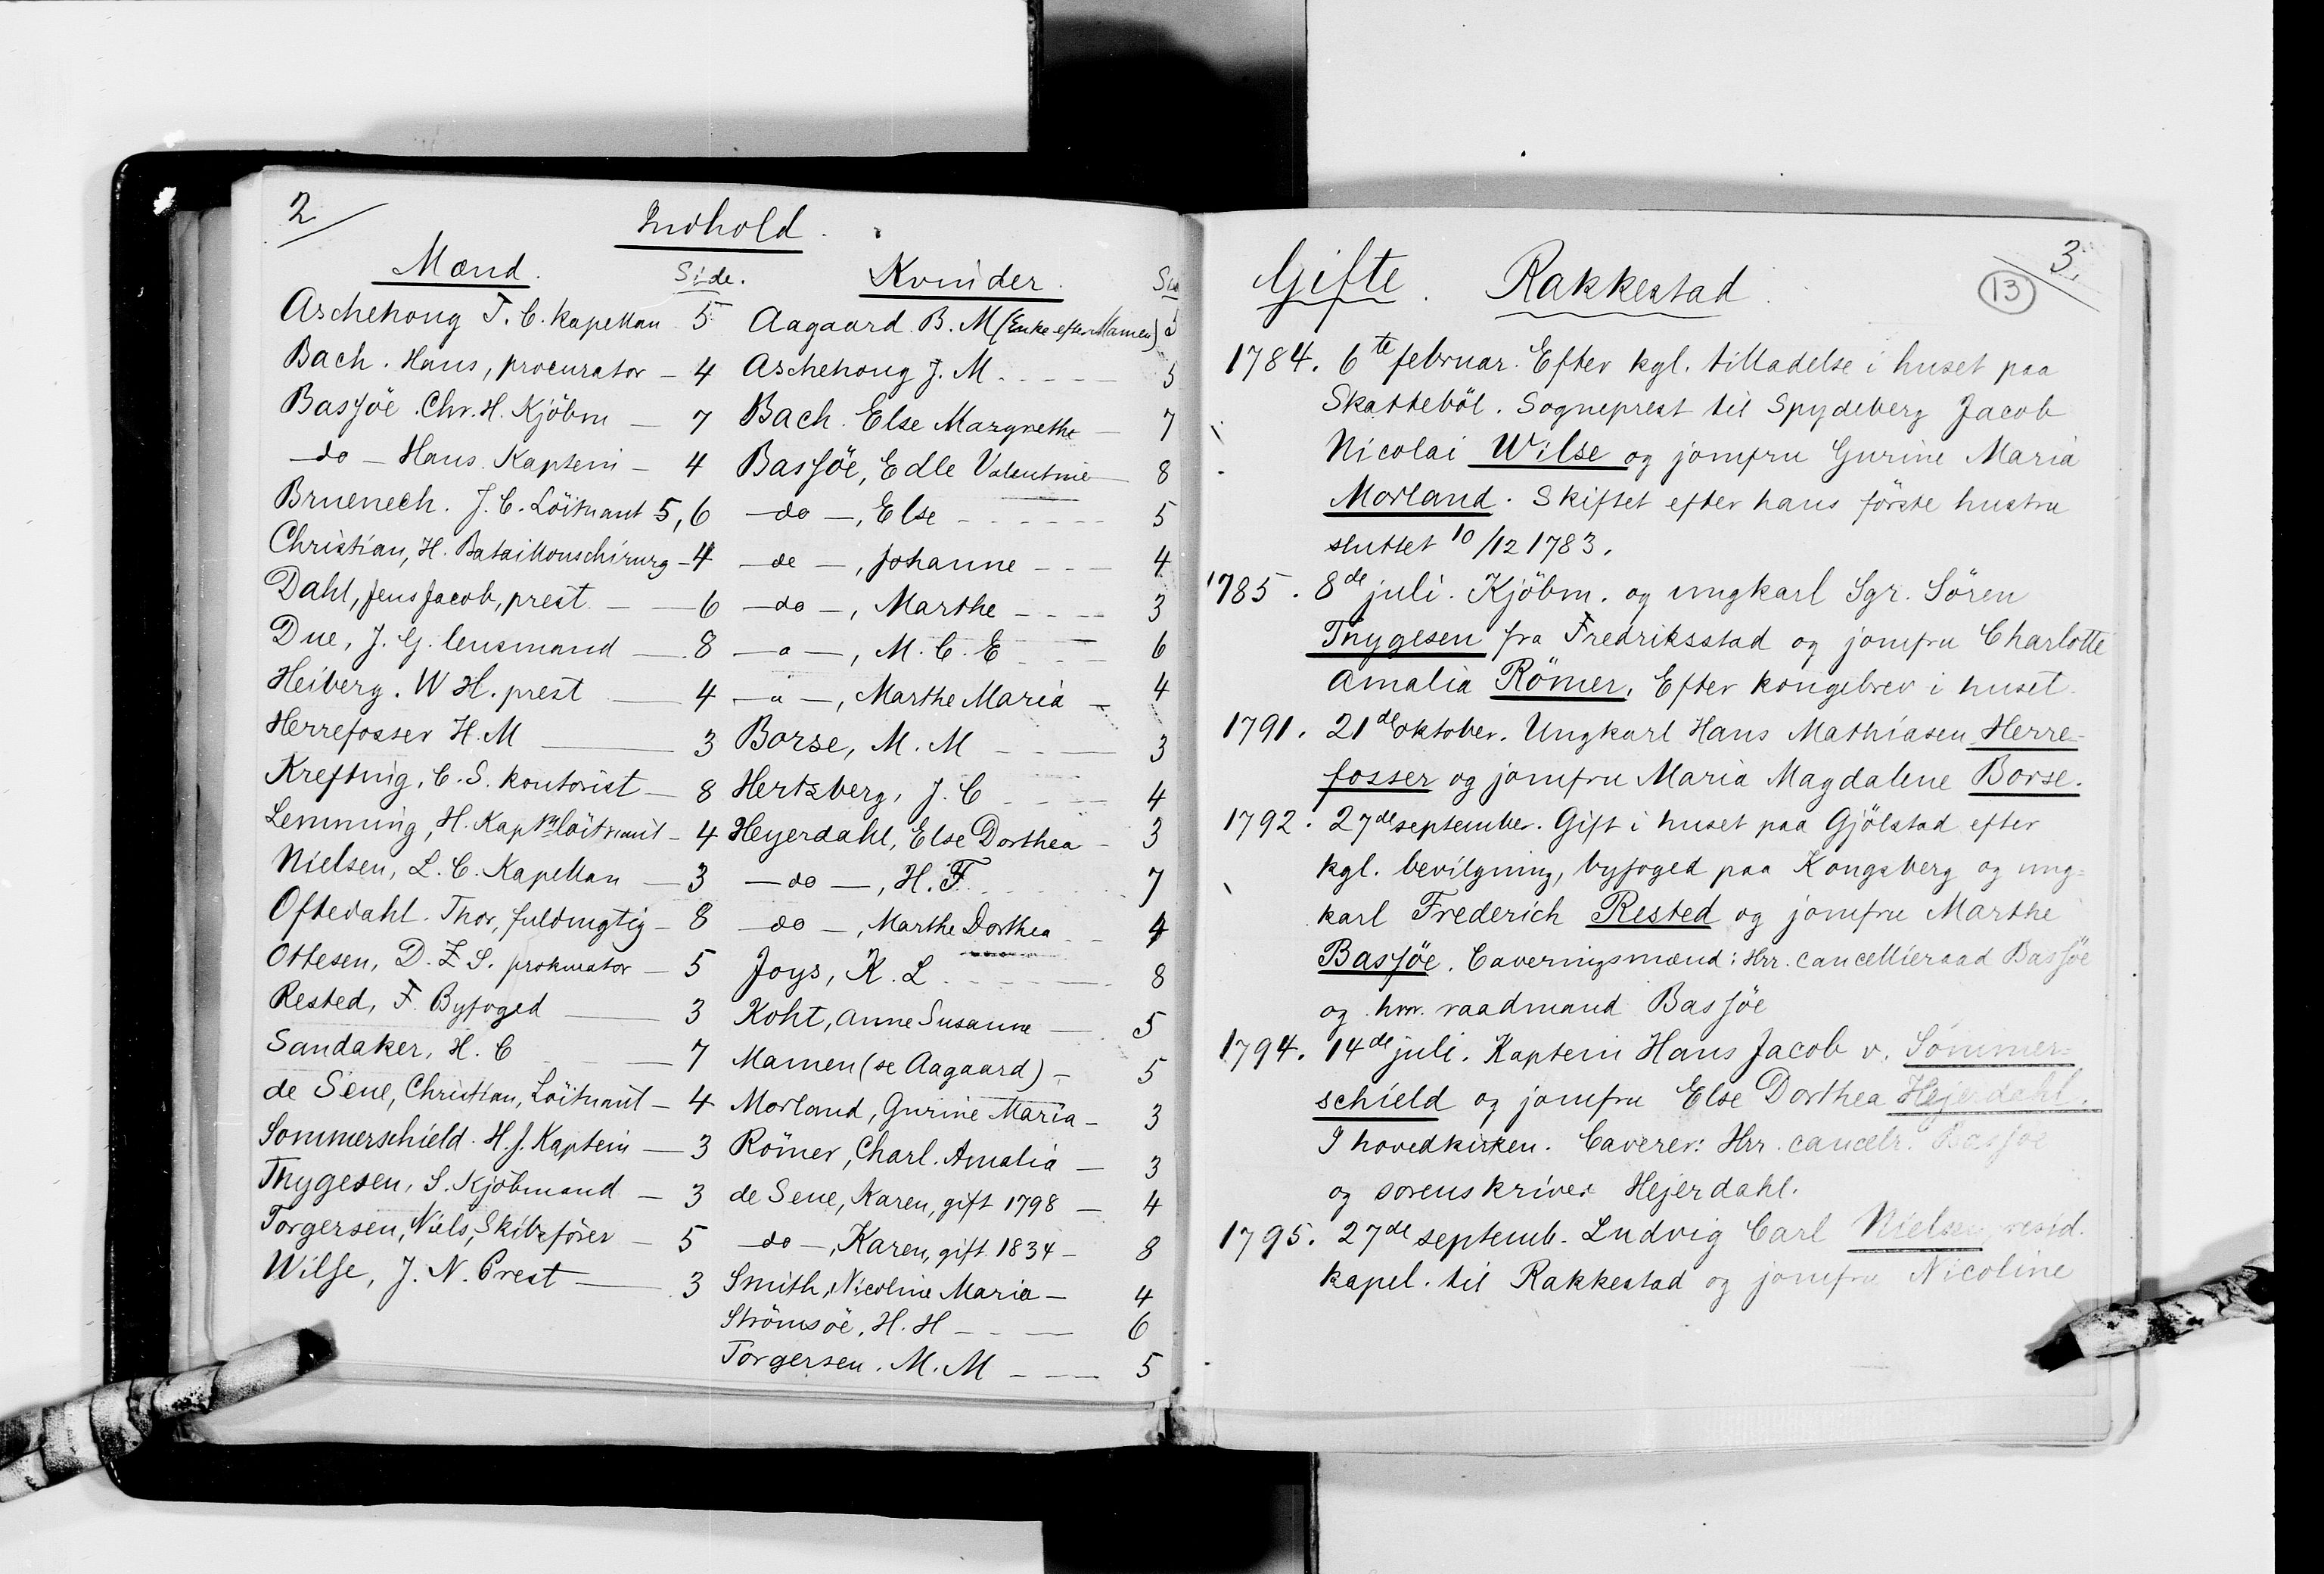 2
Indhold.
Mænd. Side.
Aschehoug T. C. kapellan 5
Bach. Hans, procurator – 4
Basföe. Chr. H. Kjöbm – 7
–do– Hans. Kaptein – 4
Bruenech. J. C. Löitnant 5, 6
Christian, H. Bataillonschirurg – 4
Dahl, Jens Jacob, prest – – 6
Due, J. G. lensmand – 8
Heiberg. W H. prest – 4
Herrefosser H. M – 3
Krefting, C. S. kontorist – 8
Lemming, H. Kapt löitnant – 4
Nielsen, L. C. Kapellan – 3
Oftedahl. Thor, fuldmgtig – 8
Ottesen, D. Z S. prokurator – 5
Rested, F. Byfoged – 3
Sandaker, H. C – 7
de Sene, Christian, Löitnant – 4
Sommerschield. H. J. Kaptein – 3
Thygesen, S. Kjöbmand – 3
Torgersen, Niels, Skibsförer – 5
Wilse, J. N. Prest – 3
Kvinder.
Aagaard. B. M (Enke efter Mamen) 5
Aschehoug J. M. – – – 5
Bach. Else Margrethe – 7
Basföe, Edle Valentine – 8
–do–, Else – – – 5
–do–, Johanne – – – 4
–do–, Marthe – – – 3
–"–, M. C. E – – – 6
–"–, Marthe Maria – 4
Borse, M. M – – – 3
Hertzberg, J. C – – – 4
Heyerdahl, Else Dorthea – 3
–do–, H. F. – – – 7
–do–, Marthe Dorthea – – 4
Joys, K. L – – – 8
Koht, Anne Susanne – 5
Mamen (se Aagaard) – 5
Morland, Gurine Maria – 3
Römer, Charl. Amalia – 3
de Sene, Karen, gift 1798 – 4
–do–, Karen, gift 1834 – 8
Smith, Nicoline Maria – 4
Strömsöe, H. H – – – 6
Torgersen. M. M – – – 5
3.
13
Gifte. Rakkestad.
1784. 6te februar. Efter kgl. tilladelse i huset paa
Skatteböl. Sogneprest til Spydeberg Jacob
Nicolai Wilse og jomfru Gurine Maria
Morland. Skiftet efter hans förste hustru
sluttet 10/12 1783.
1785. 8de juli. Kjöbm. og ungkarl Sgr. Sören
Thygesen fra Fredriksstad og jomfru Charlotte
Amalia Römer. Efter kongebrev i huset.
1791. 21de oktober. Ungkarl Hans Mathiasen Herre-
fosser og jomfru Maria Magdalene Borse.
1792. 27de september. Gift i huset paa Gjölstad efter
kgl. bevilgning, byfoged paa Kongsberg og ung=
karl Frederich Rested og jomfru Marthe
Basföe. Caveringsmænd: Hrr. cancellieraad Basföe
og hrr. raadmand Basföe
1794. 14de juli. Kaptein Hans Jacob v. Sommer=
schield og jomfru Else Dorthea Hejerdahl.
I hovedkirken. Caverer: Hrr. cancelr. Basföe
og sorenskriver Hejerdahl.
1795. 27de septemb. Ludvig Carl Nielsen, resid.
kapel. til Rakkestad og jomfru Nicoline